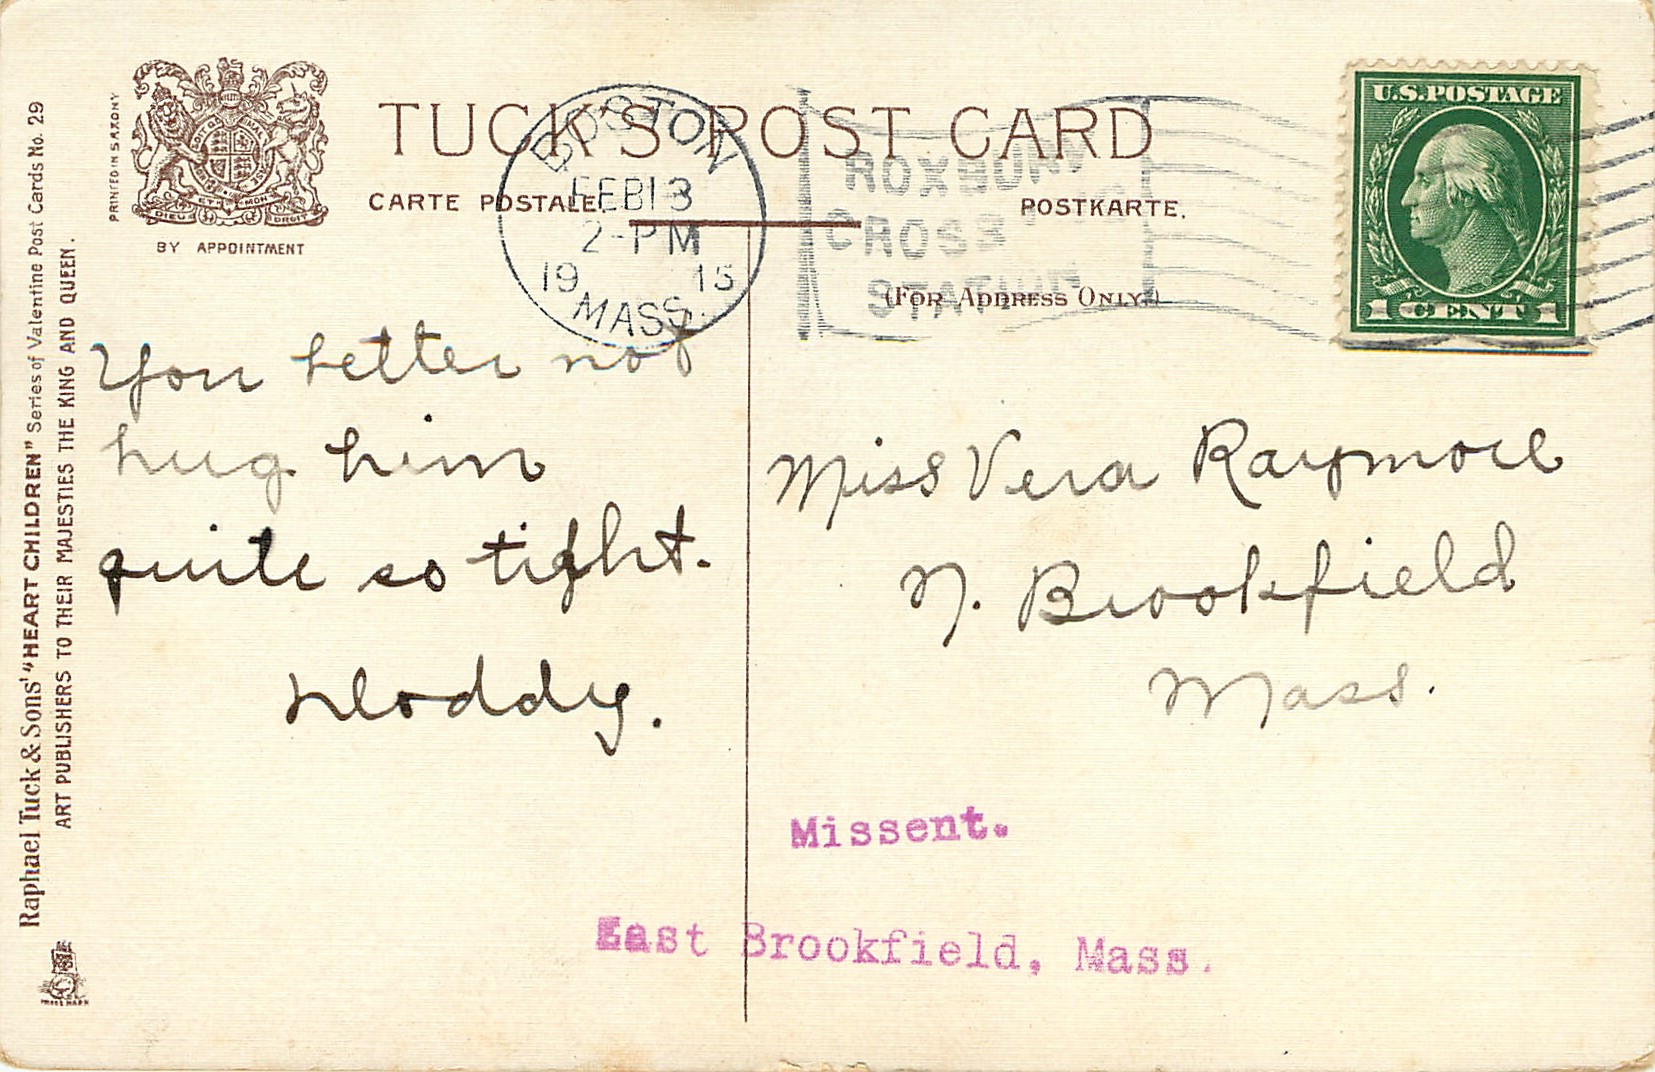 TUCK'S POST CARD
CARTE POSTALE.
POSTKARTE.
(FOR ADDRESS ONLY.)
PRINTED IN SAXONY
BY APPOINTMENT
DIEU ET MON DROIT
BOSTON
FEB 13
2-PM
19 15
MASS.
ROXBURY
CROSSING
STATION
U.S.POSTAGE
1 CENT 1
You better not
hug him
quite so tight.
Miss Vera Raymore
N. Brookfield
Mass.
Missent.
East Brookfield, Mass.
Raphael Tuck & Sons' "HEART CHILDREN" Series of Valentine Post Cards No. 29
ART PUBLISHERS TO THEIR MAJESTIES THE KING AND QUEEN.